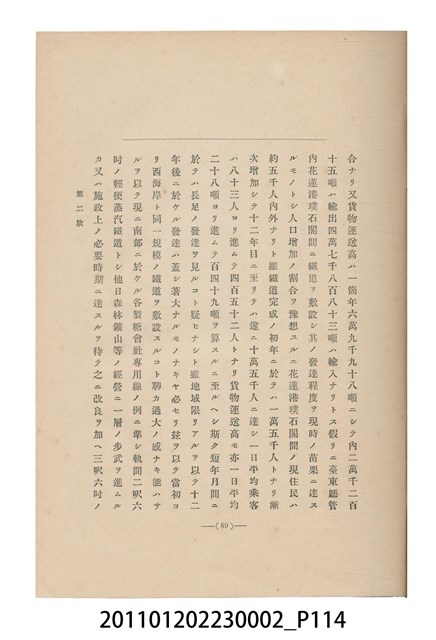 合ナリ又貨物運送高ハ一箇年六萬九千九十八噸ニシテ內二萬千二百
十五噸ハ輸出四萬七千八百八十三噸ハ輸入ナリトス假リニ臺東廳管
內花蓮港璞石閣間ニ鐵道ヲ敷設シ其ノ發達程度ヲ現時ノ苗栗ニ達ス
ルモノトシ人口增加ノ割合ヲ豫想スルニ花蓮港璞石閣間ノ現住民ハ
約五千人內外ナリト雖鐵道完成ノ初年ニ於テハ一萬五千人トナリ漸
次增加シテ十二年目ニ至リテハ遂ニ十萬五千人ニ達シ一日平均乘客
ハ八十三人ヨリ進ムテ四百五十二人トナリ貨物運送高モ亦一日平均
二十八噸ヨリ進ムテ百四十九噸ヲ算スルニ至ルヘシ斯ク短年月間ニ
於テハ長足ノ發達ヲ見ルコト疑ヒナシト雖地域限リアルヲ以テ十二
年後ニ於ケル發達ハ蓋シ著大ナルモノナキヤ必セリ玆ヲ以テ當初ヨ
リ西海岸ト同一規模ノ鐵道ヲ敷設スルコト聊カ過大ノ感ナキ能ハサ
ルヲ以テ現ニ南部ニ於ケル各製糖會社專用線ノ例ニ準シ軌間二呎六
吋ノ輕便蒸汽鐵道トシ他日森林鑛山等ノ經營ニ一層ノ步武ヲ進ムル
カ又ハ施政上ノ必要時期ニ達スルヲ待テ之ニ改良ヲ加ヘ三呎六吋ノ
第二號
(89)
201101202230002_P114